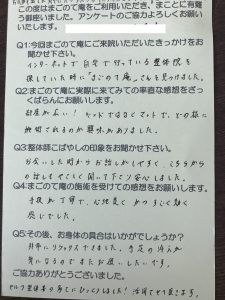 この度はまごのて庵をご利用いただき、まことに有難う
御座いました。アンケートのご協力よろしくお願い
いたします。
Q1:今回まごのて庵にご来院いただいたきっかけをお
聞かせ下さい。
インターネットで自宅で行っている整体院を
探していた時に「まごのて庵」さんを見つけました。
Q2:まごのて庵に実際に来てみての率直な感想をざっ
くばらんにお聞かせ下さい。
部屋が広い! ベッドではなくマットで、どの様に
施術されるのか興味がありました。
Q3:整体師こばやしの印象をお聞かせ下さい。
お会いした時からお話しがしやすく、こちらから
の話しもやさしく聞いて下さり安心しました。
Q4:まごのて庵の施術を受けての感想をお願いします。
手技が丁寧で、心地良くかつすごく効く
感じでした。
Q5:その後、お身体の具合はいかがでしょうか?
非常にリラックスできました。今走の浮んが
気になるのでまたお渡ししたいです。
ご協力ありがとうございました。
セルフ整体本の多さにびっくりしました!活用させて貰います。